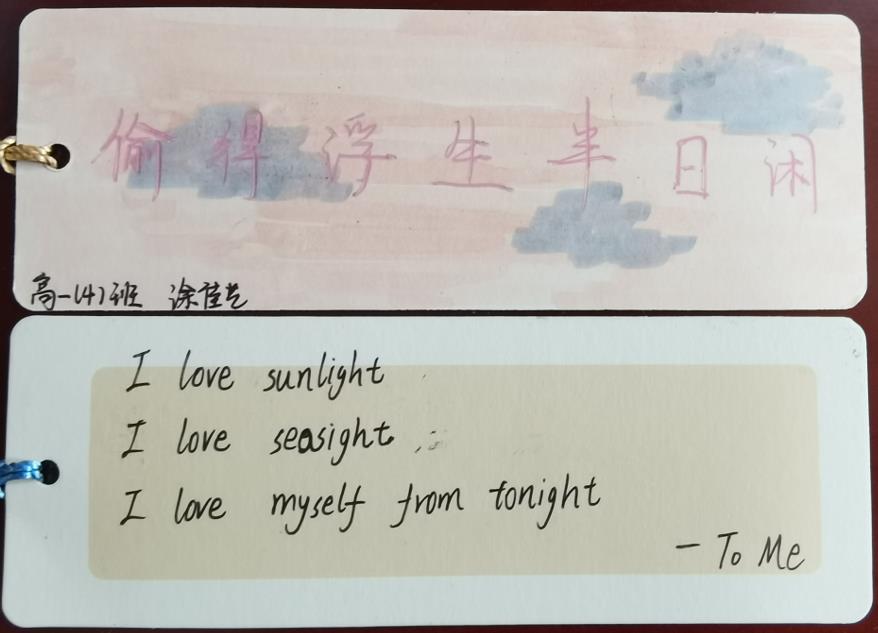 偷得浮生半日闲
高一(4)班 涂佳艺
I love sunlight
I love seasight
I love myself from tonight
- To Me